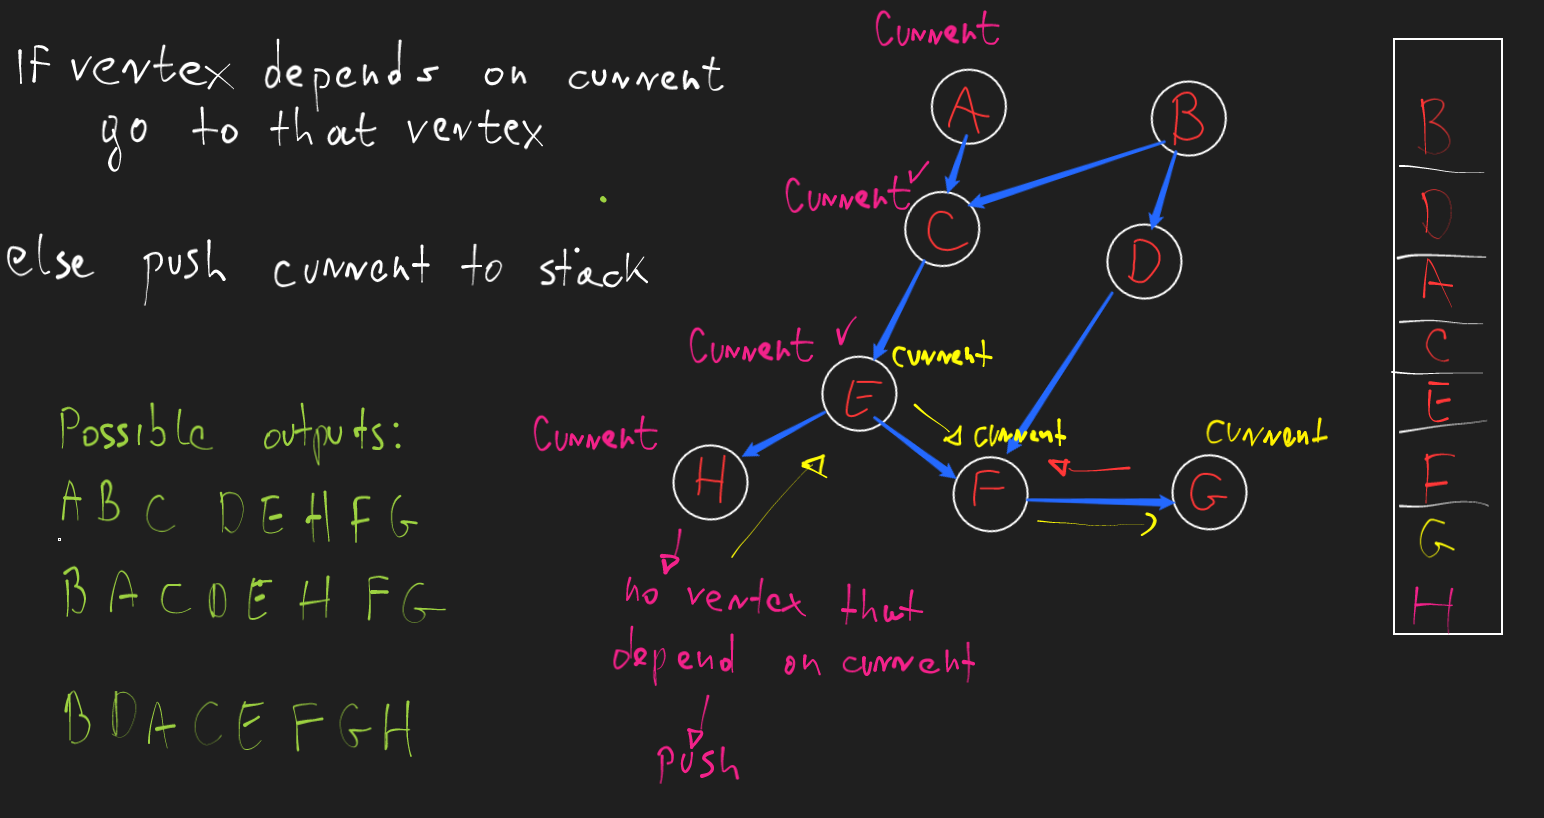 If vertex depends on current
go to that vertex
else push current to stack
Possible outputs:
A B C D E H F G
B A C D E H F G
B D A C E F G H
Current
A
B
Current ✓
C
D
Current ✓
current
E
Current
current
Current
H
F
G
no vertex that
depend on current
push
B
D
A
C
E
F
G
H